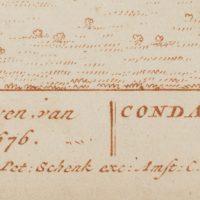 ven, van
676.
CONDA
Pet: Schenk exc: Amst: C.